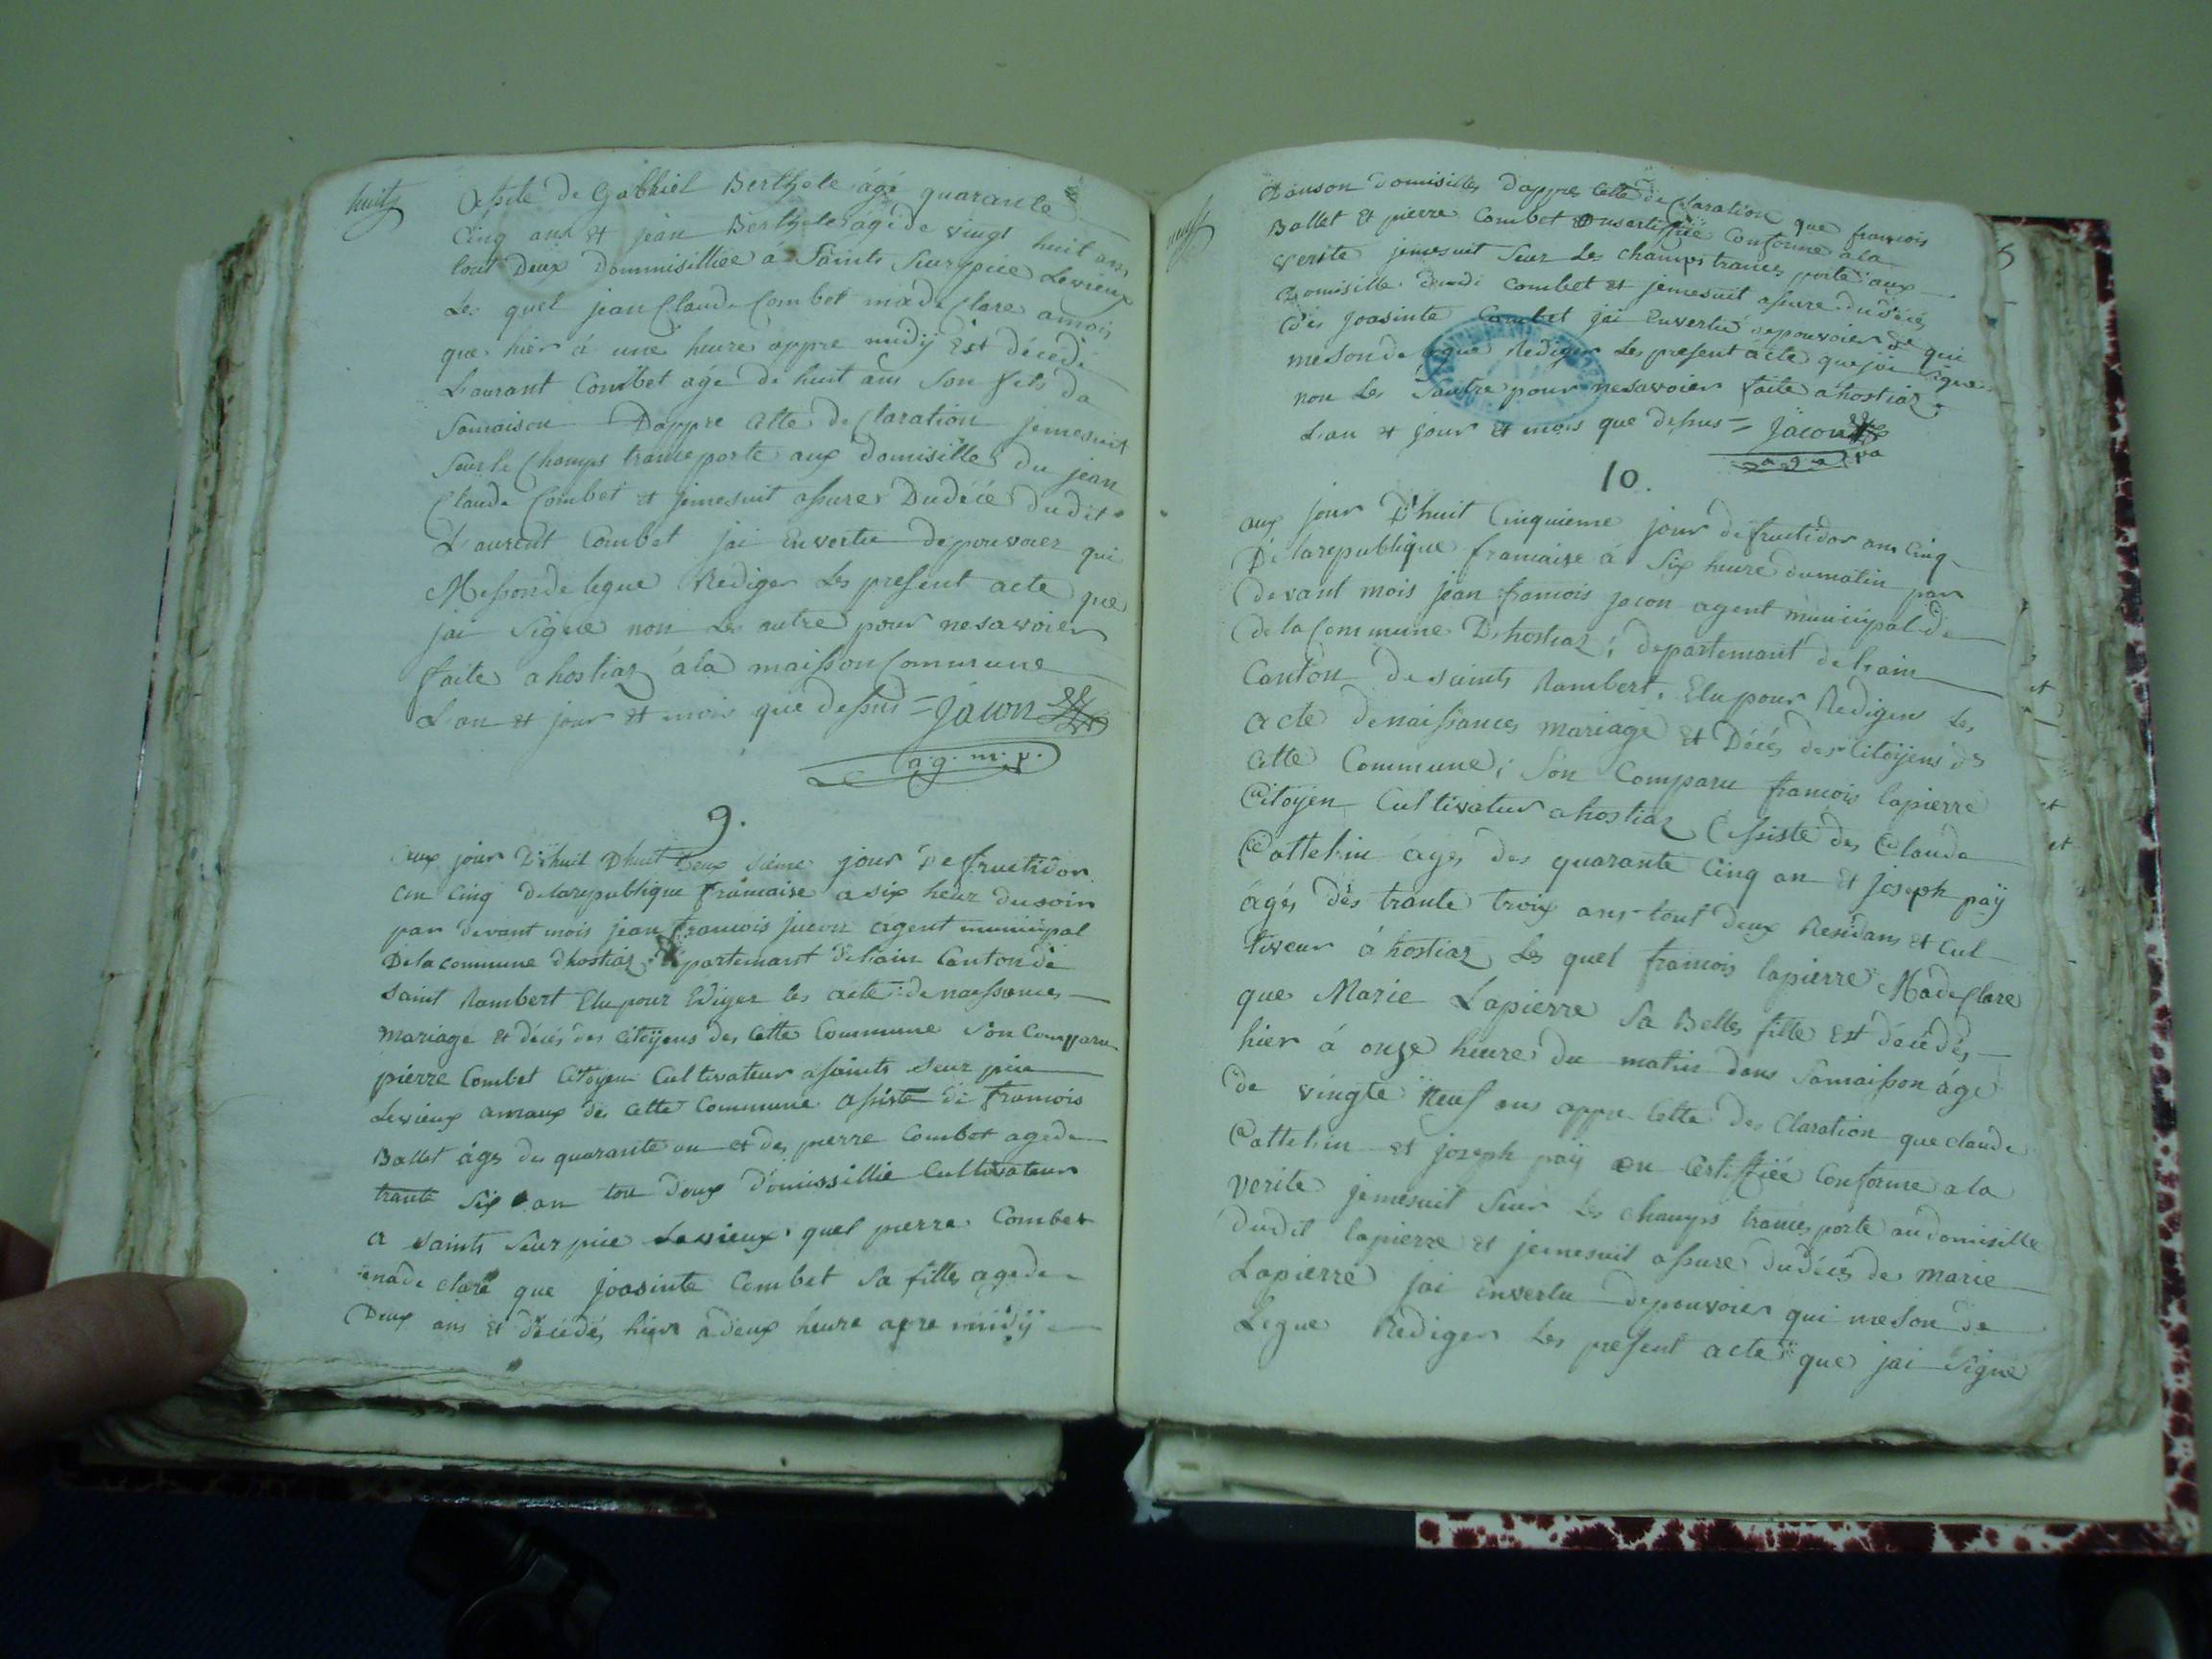 huit
Assiste de Gabhiel Berthele agé quarante
Cinq ans et jean Berthele agé de vingt huit ans
tout Deux Dommisilliee á Saints Seurpice Levieux
Le quel jean Claude Combet ma de Clare amois
que hier á une heure appre midÿ Est décédé
Laurant Combet age de huit ans Son fils da
Samaison Dappre Cette de Claration jemesuit
Seur le Champs tranceporte aux domisille du jean
Claude Combet et jemesuit assure Dudécé dudit
Laurent Combet jai Envertu depouvoier qui
Messondelegue Rediger Les present acte que
jai Signe non Les autre pour nesavoier
faite a hostiaz ála maisson Commune
L'an et jour et mois que dessus = Jacon
a.g. m.p.
9.
aux jour D'huit Dhuit Deux sieme jour De fructidor
an Cinq delarepublique francaise a six heur dusoir
par devant mois jean francois jacon agent municipal
Delacommune dhostiaz departemant delain Canton de
Saint Rambert Elu pour Rdiger les acte de naissances
mariage et décés des Citoÿens des Cette Commune Son Comparu
pierre Combet Citoyen Cultivateur asaints Seur pice
Levieux amaux des Cette Commune assiste de francois
Ballet áges des quarante an et des pierre Combet agede
trante Six an tou Deux Domissillie Cultivateur
a Saints Seur pice Levieux quel pierre Combet
made clare que Joasinte Combet Sa filles agede
Deux ans Et décédés hier adeux heure apre midÿ
neuf
Danson domisilles Dappres Cette de Claration que francois
Ballet Et pierre Combet Onsertifiée Conforme ala
verite jemesuit Seur Les champs trances porte aux
Domisille dudi Combet et jemesuit assure dudécés
des Joasinte Combet jai Envertu depouvoier de qui
meson de legue Rediger Les present ácte que jai Signe
non Les Sautre pour nesavoier faite a hostiaz
L'an et jour et mois que dessus = Jacon
10.
aux jour D'huit Cinquieme jour de fructidor an Cinq
De larepublique francaise á Six heure dumatin par
devant mois jean francois jacon agent municipal de
de la Commune D'hostiaz ; departemant delain
Canton de saints Rambert, Elu pour Rediger Les
acte denaissances mariage et Décés des Citoÿens des
Cette Commune ; Son Comparu francois lapierre
Citoÿen Cultivateur ahostiaz Assisté des Claude
Cattelin ágés des quarante Cinq an et joseph paÿ
ágés dés trante troix ans tout deux Residans et Cul
tiveur á hostiaz Les quel francois lapierre Made Clare
que Marie Lapierre Sa Belles fille Est décédés
hier á onze heure du matin dans Samaisson ágé
de vingte Neuf ans appre Cette des Claration que claude
Cattelin et joseph paÿ on Certiffiée Conforme ala
verite jemesuit Seur Les champs trances porte audomisille
dudit lapierre et jemesuit assure dudécés de marie
Lapierre jai Envertu depouvoier qui meson de
Legue Rediger Les present acte que jai Signe